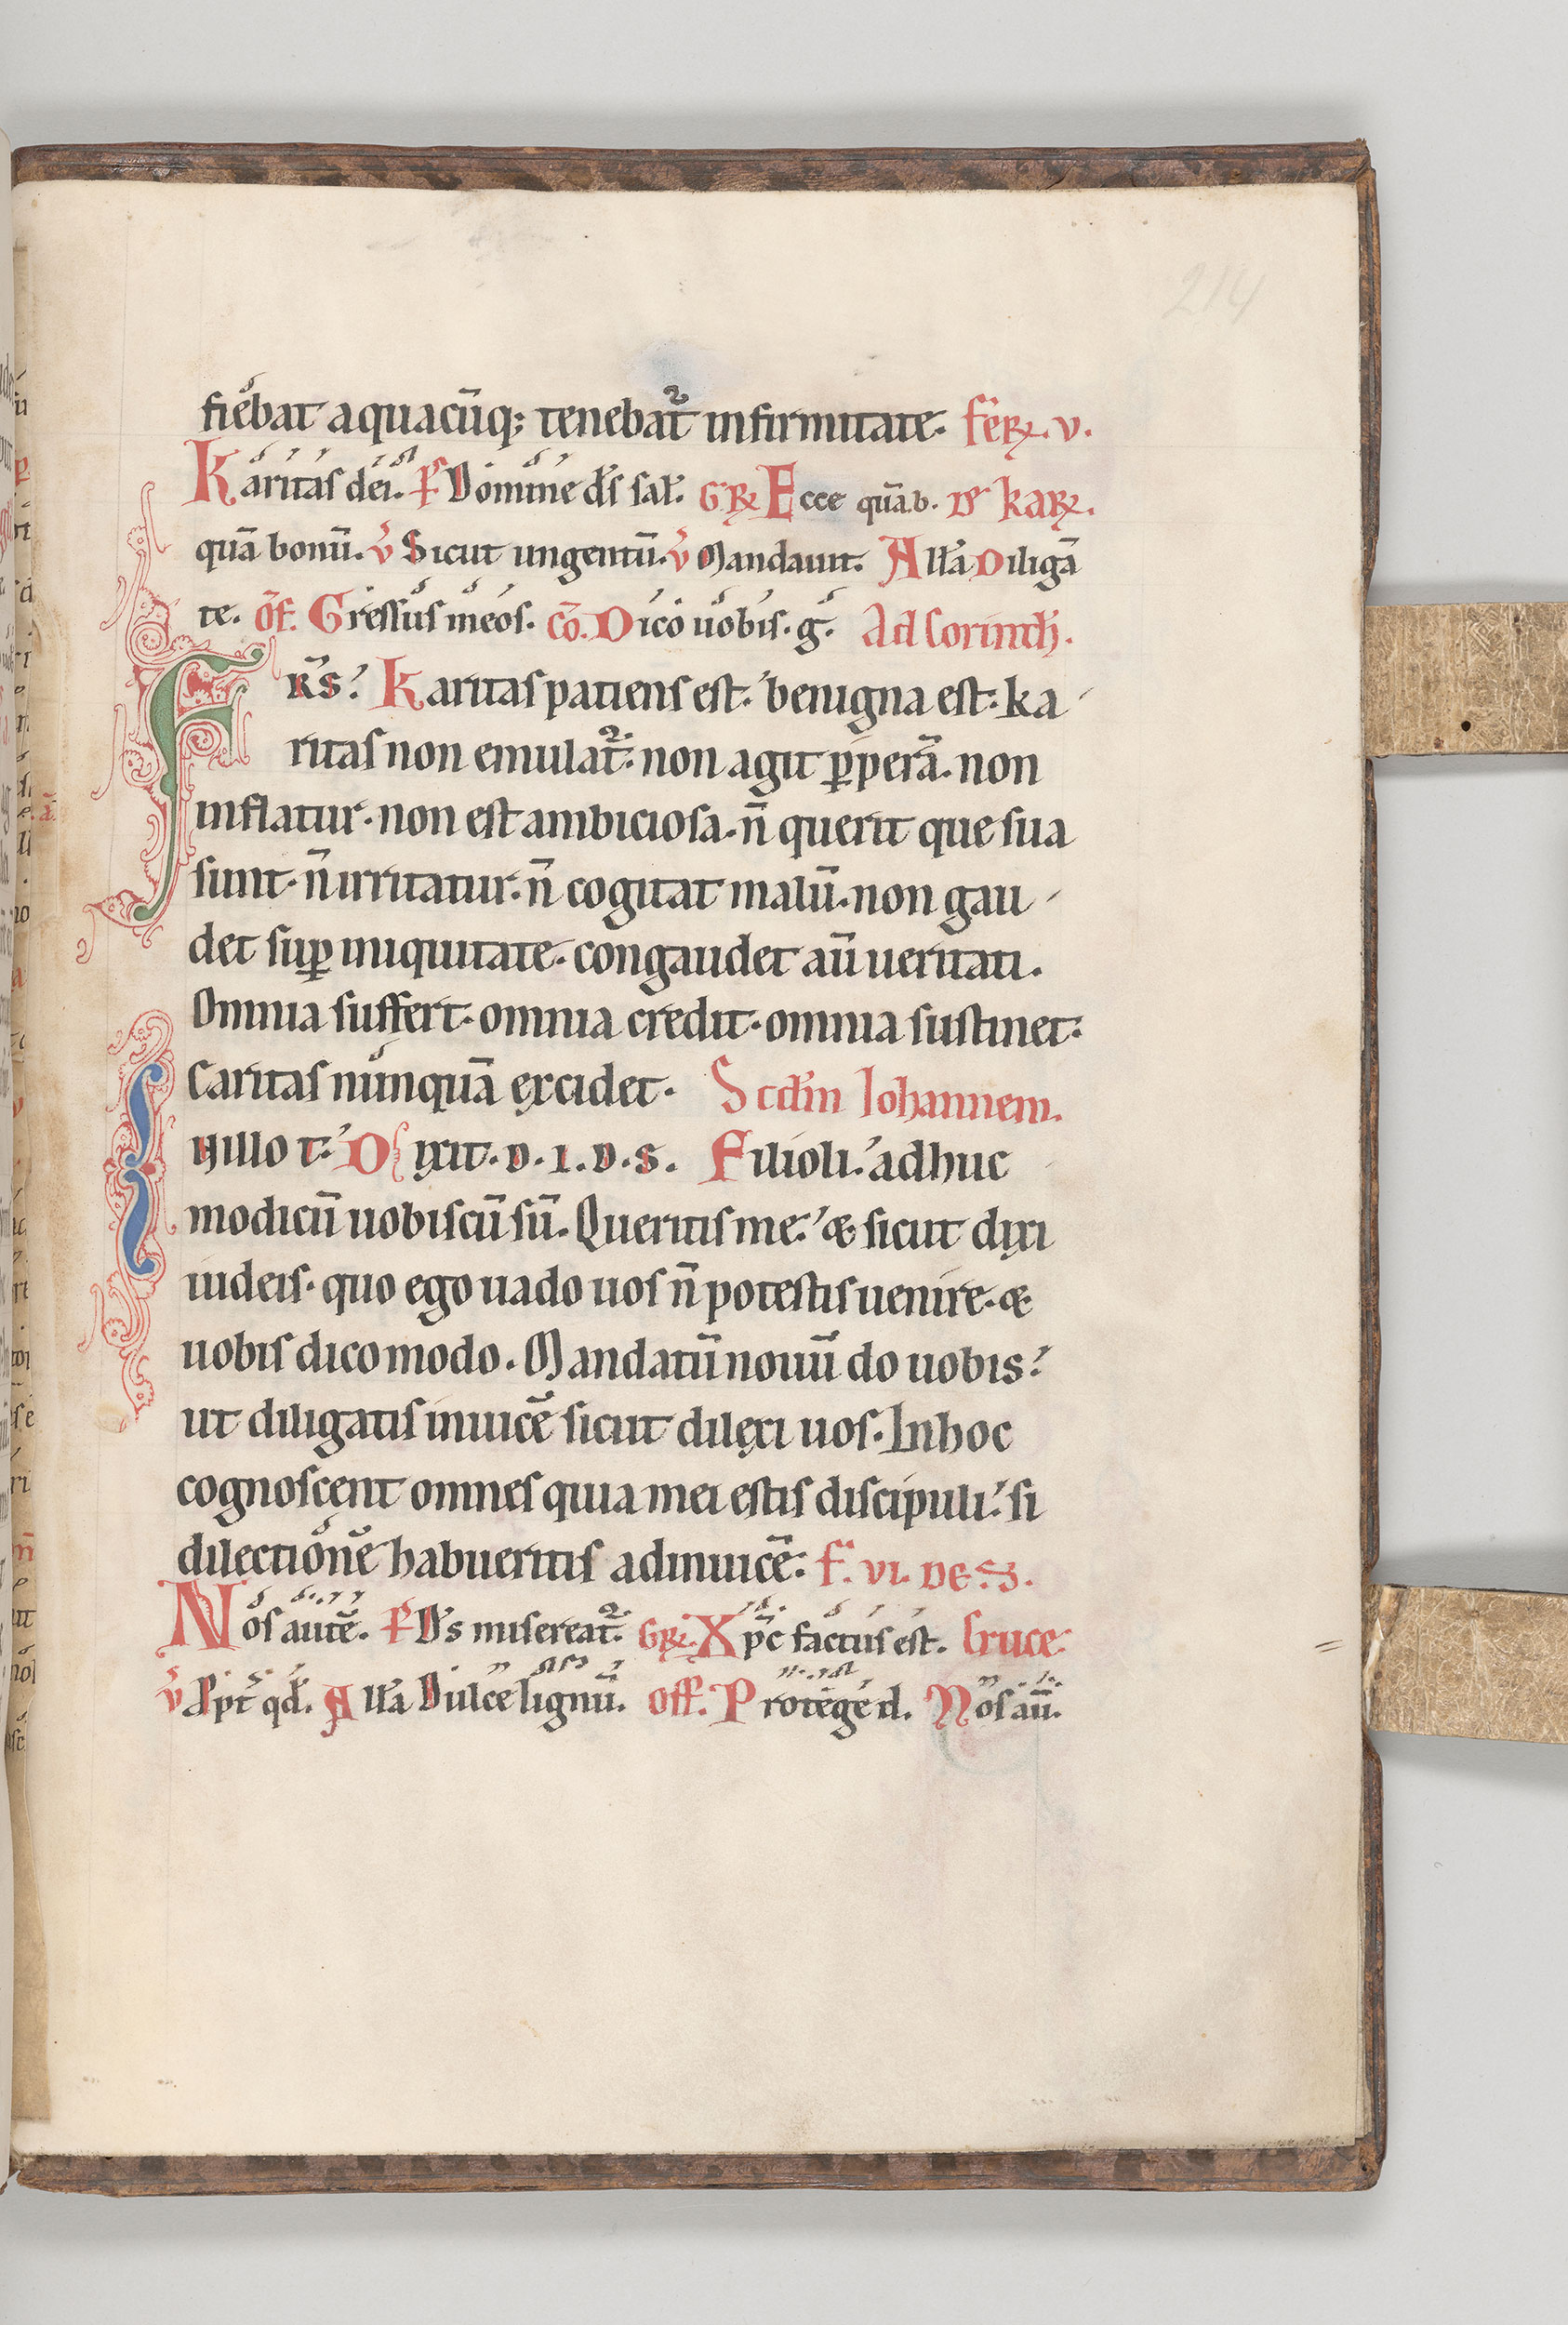 214
fiebat aquacūq; tenebat᷑ infirmitate. fer̄. v.
Karitas dei. p̄s Domine ds̄ sal̄. GR̄ Ecce quā.b. DE kar̄.
quā bonū. v̄ Sicut ungentū. v̄ Mandauit. All̄a Diligā
te. of̄. Gressus meos. cō. Dico uobis. g. Ad Corinth̄.
FR̄S: Karitas patiens est. benigna est. ka
ritas non emulat᷑. non agit ꝑperā. non
inflatur. non est ambiciosa. n̄ querit que sua
sunt. n̄ irritatur. n̄ cogitat malū. non gau
det suꝑ iniquitate. congaudet aū ueritati.
Omnia suffert. omnia credit. omnia sustinet.
Caritas nunquā excidet. Scd̄m Iohannem.
IN illo t. Dixit. D. I. D. S. Filioli. adhuc
modicū uobiscū sū. Queritis me. & sicut dixi
iudeis. quo ego uado uos n̄ potestis uenire. &
uobis dico modo. Mandatū nouū do uobis.
ut diligatis inuicē sicut dilexi uos. In hoc
cognoscent omnes quia mei estis discipuli. si
dilectionē habueritis adinuicē. F. VI. DE. S.
Nos autē. p̄s D̄s misereat᷑. GR̄. Xp̄c factus est. Cruce.
v̄ Ppt̄ qd̄. All̄a Dulce lignū. Off. Protege d. Nos aū.